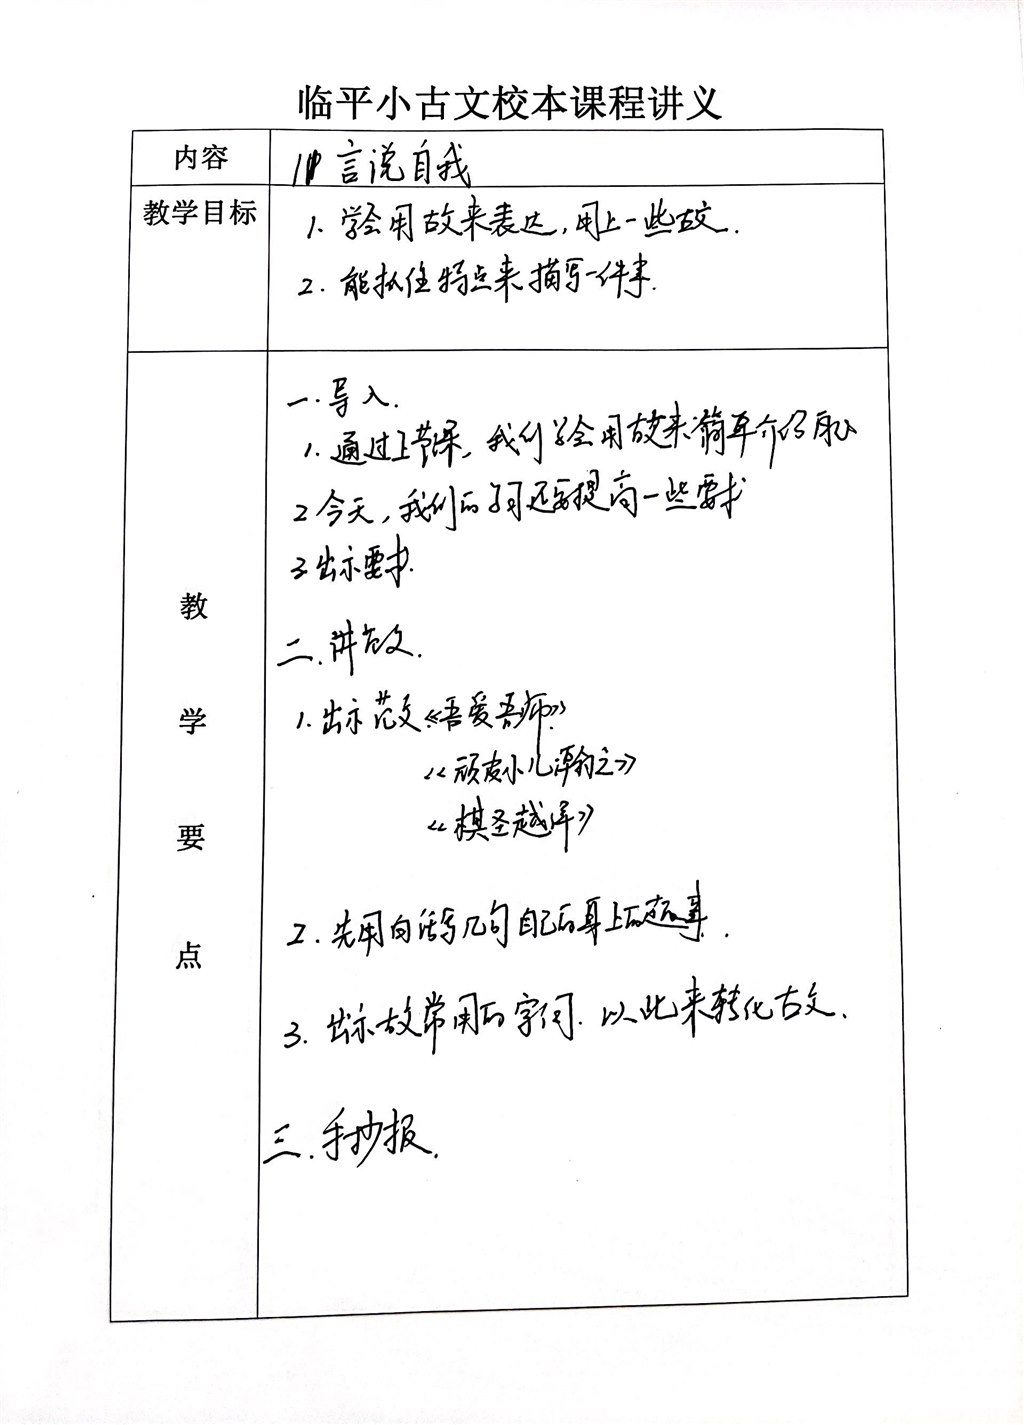 临平小古文校本课程讲义
内容
言说自我
教学目标
1. 学会用古文来表达,用上一些古文.
2. 能抓住特点来描写一件事.
教学要点
一.导入.
1. 通过上节课,我们学会用古文来简单介绍自己
2 今天,我们的学习还要提高一些要求
3 出示要求.
二.讲古文.
1. 出示范文《吾爱吾师》
《顽皮小儿瀚之》
《棋圣越洋》
2. 先用白话写几句自己的身上的趣事.
3. 出示古文常用的字词.以此来转化古文.
三.手抄报.